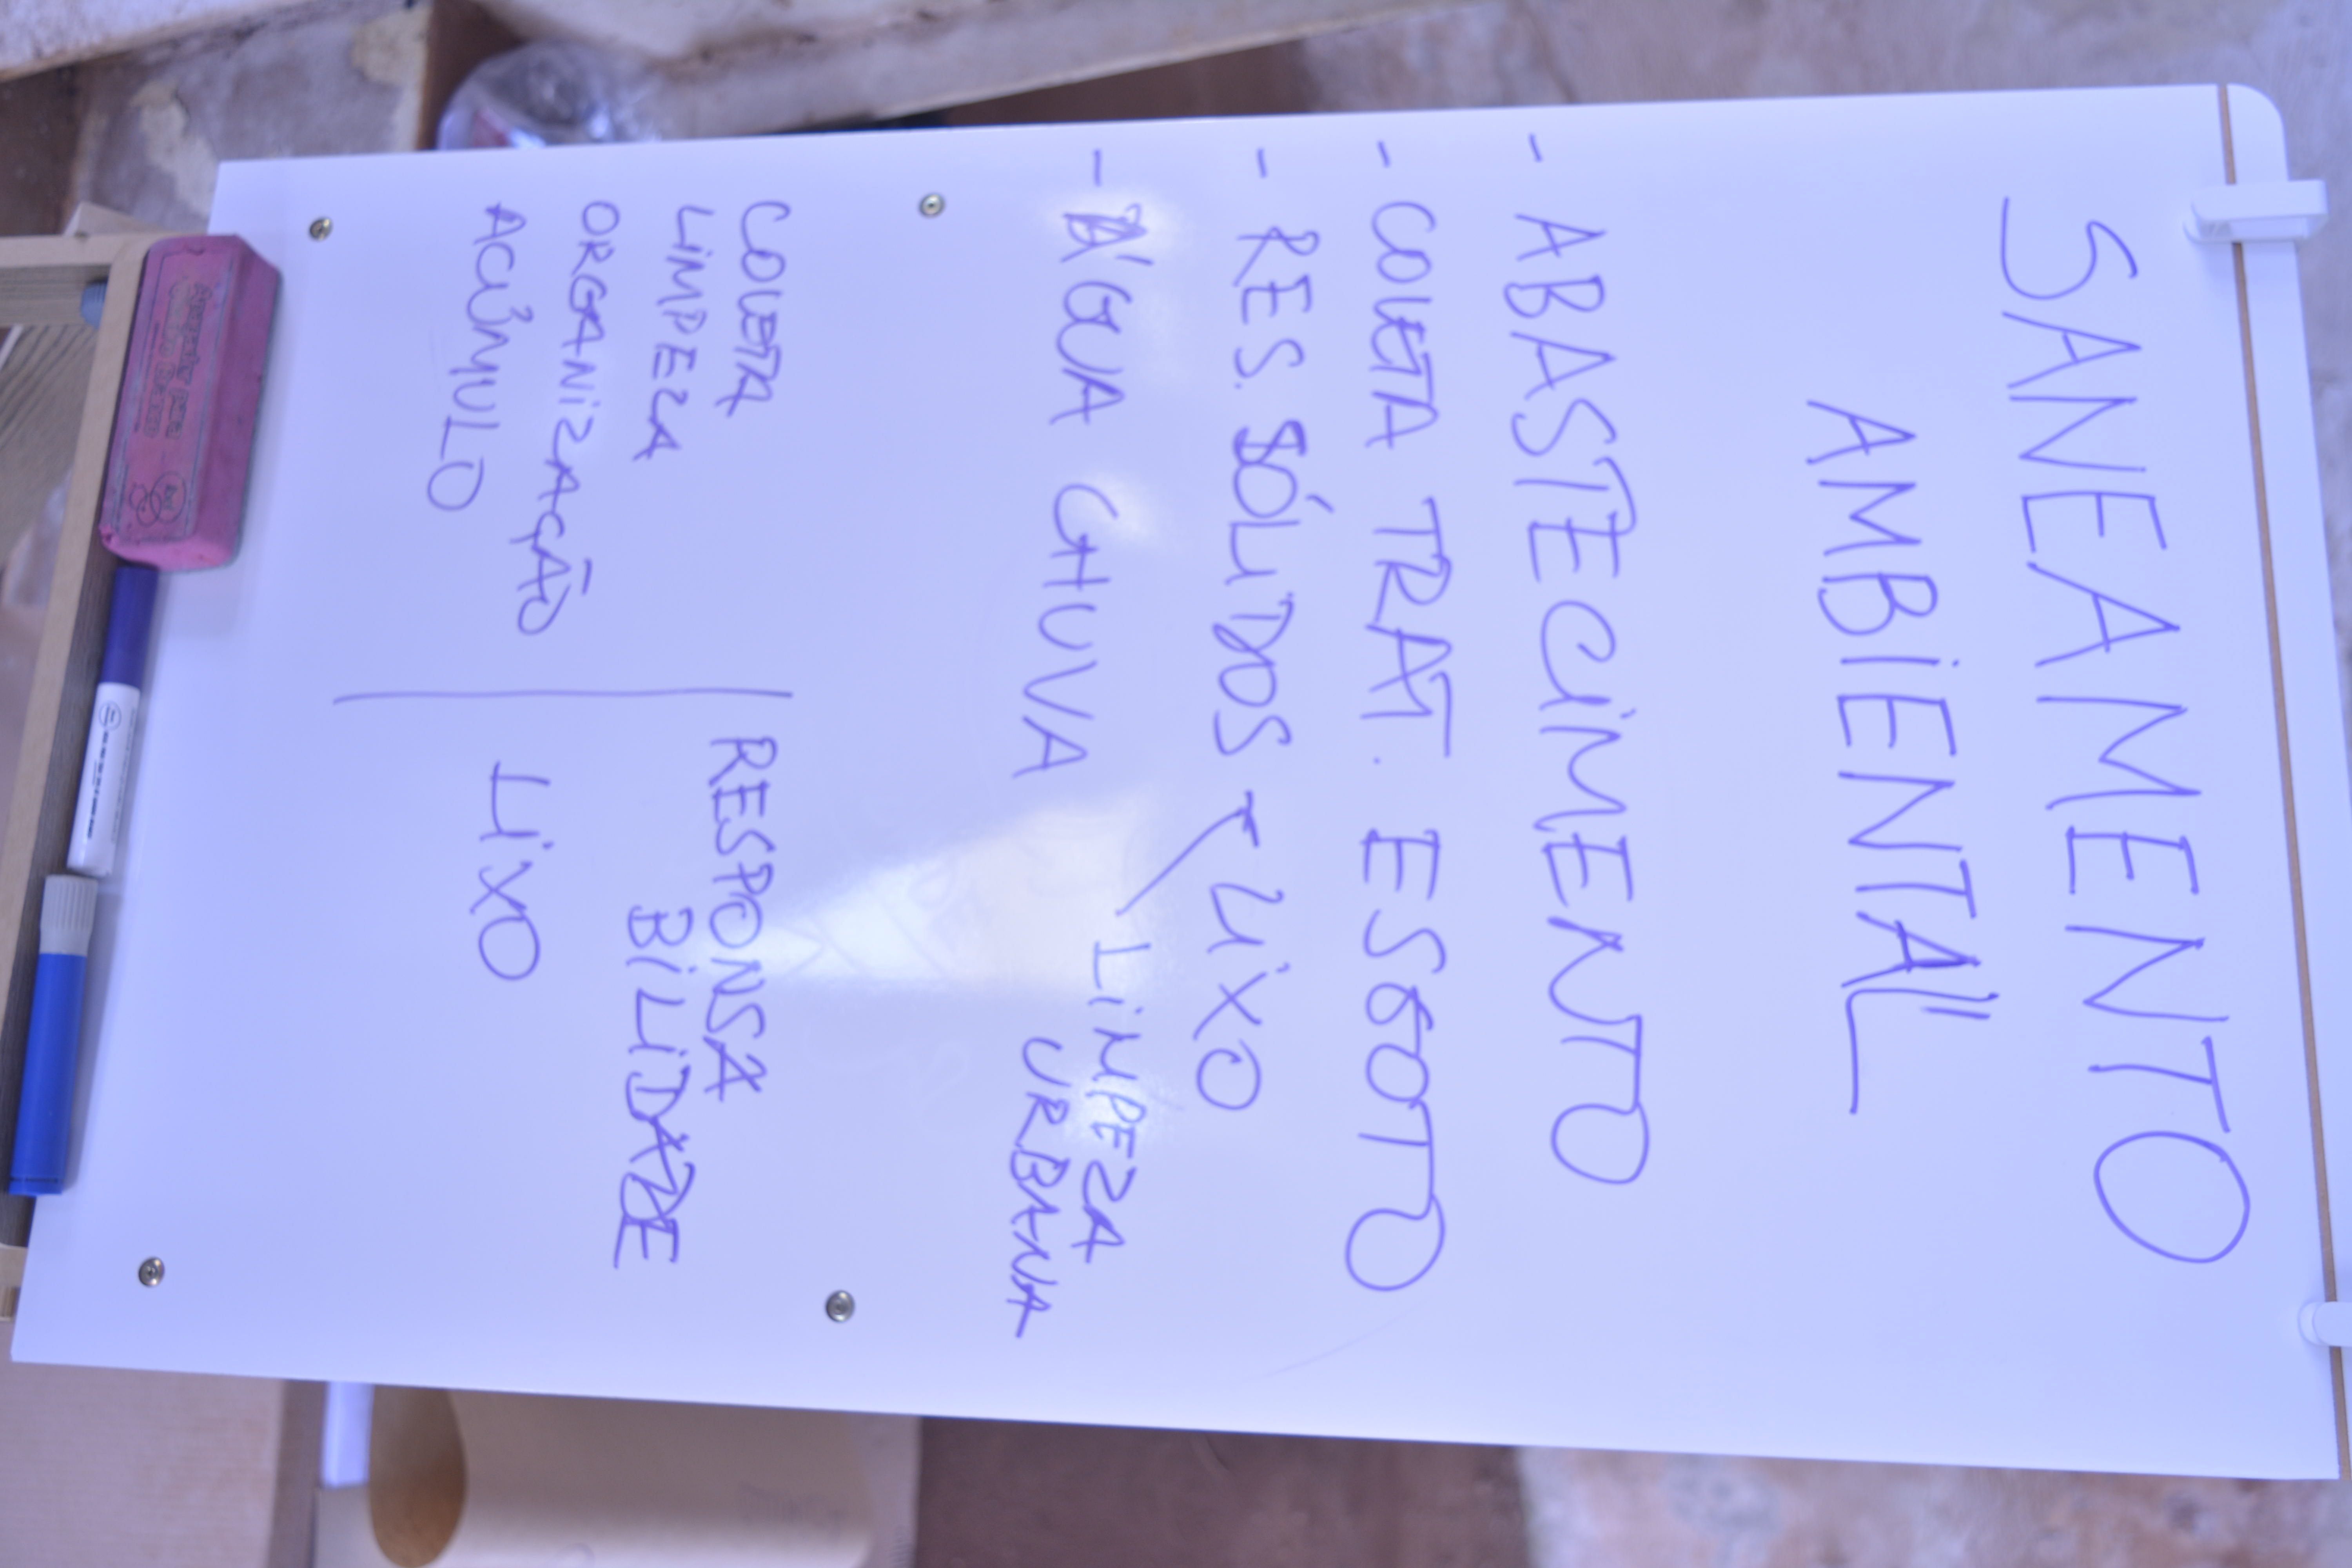 SANEAMENTO
AMBIENTAL
- ABASTECIMENTO
- COLETA TRAT. ESGOTO
- RES. SÓLIDOS LIXO
- ÁGUA CHUVA
LIMPEZA
URBANA
COLETA
LIMPEZA
ORGANIZAÇÃO
ACÚMULO
RESPONSA
BILIDADE
LIXO
Apagador para